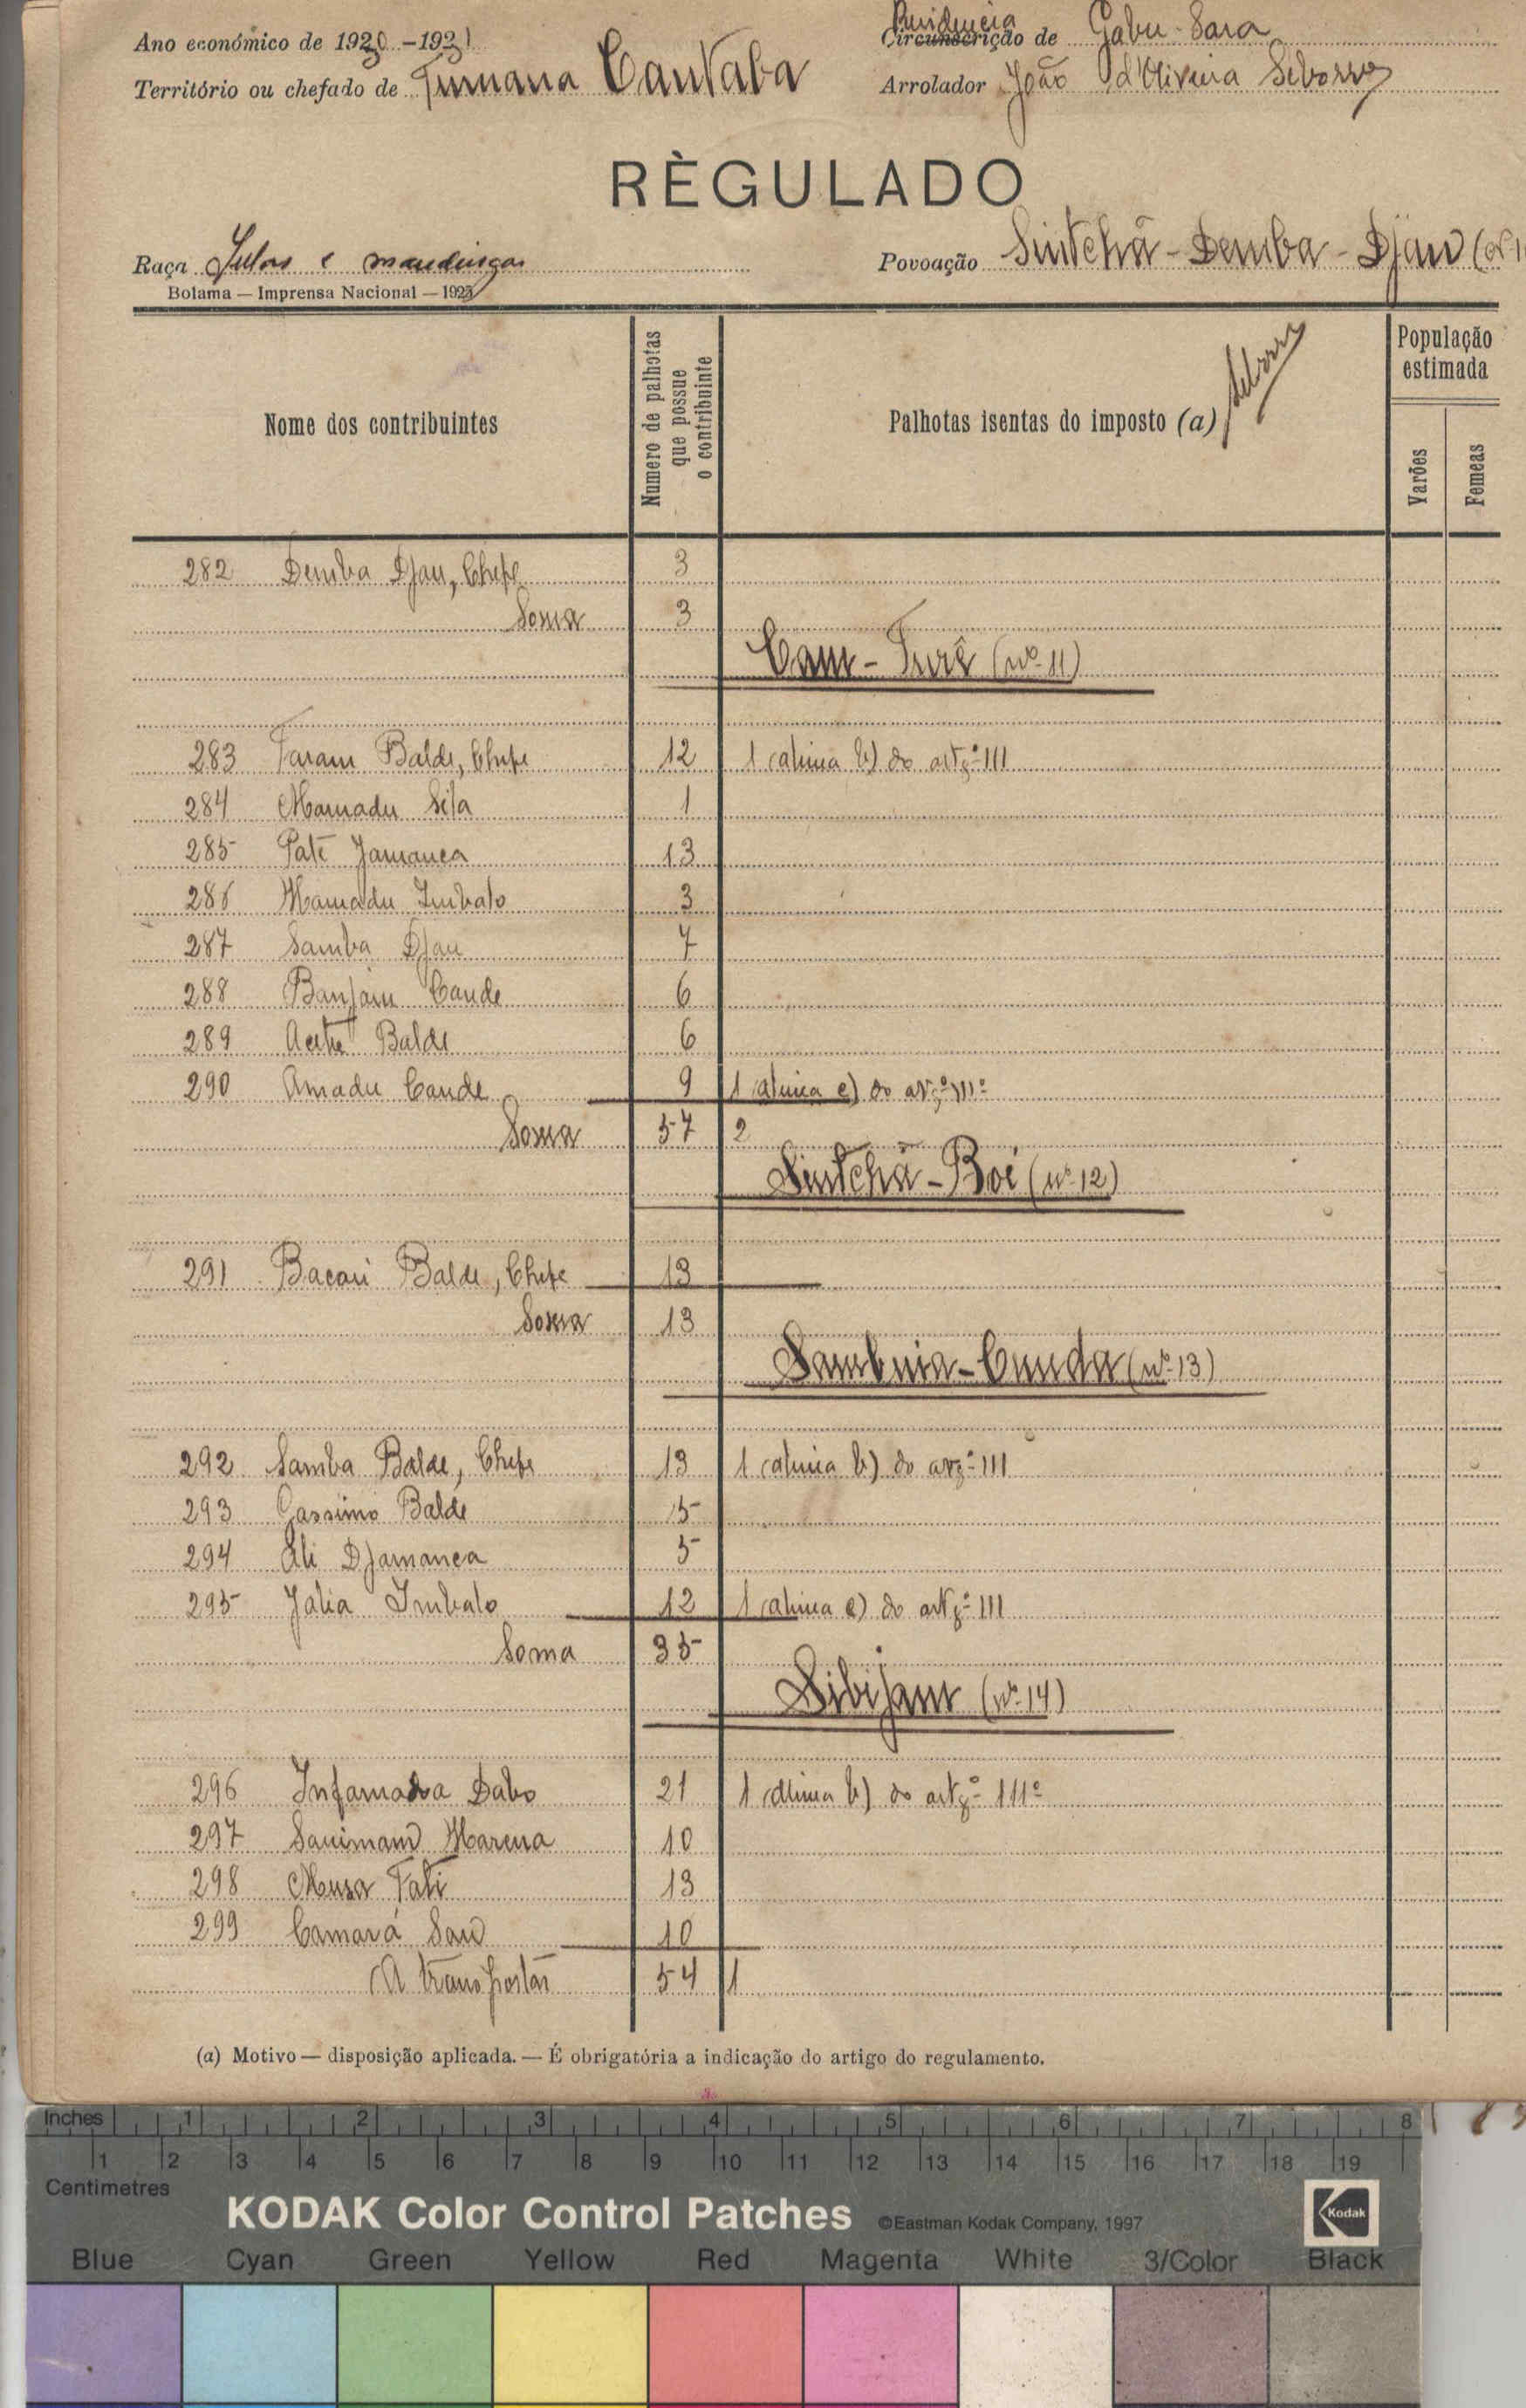 Ano económico de 1930-1931
Residencia
Circunscrição de Gabu-Sara
Território ou chefado de Tumana Cantaba
Arrolador João d'Oliveira
RÈGULADO
Raça Fulas e mandingas
Povoação Sintchã-Demba-Djau
Bolama — Imprensa Nacional — 1925
Nome dos contribuintes
Numero de palhotas que possue o contribuinte
Palhotas isentas do imposto (a)
População estimada
Varões
Femeas
282 Demba Djau, Chefe 3
Soma 3
Cam-Turê (nº 11)
283 Faram Balde, Chefe 12 1 (alinea b) do artgº 111
284 Mamadu Sila 1
285 Paté Jamanca 13
286 Mamadu Imbalo 3
287 Samba Djau 7
288 Banjam Cande 6
289 Balde 6
290 Amadu Cande 9 1 (alinea e) do artgº 111º
Soma 57 2
Sintchã-Boi (nº 12)
291 Bacari Balde, Chefe 13
Soma 13
Sambuia-Cunda (nº 13)
292 Samba Balde, Chefe 13 1 (alinea b) do argº 111
293 Cassimo Balde 5
294 Ali Djamanca 5
295 Jalia Imbalo 12 1 (alinea e) do artgº 111
Soma 35
Sibijam (nº 14)
296 Infamara Dabo 21 1 (alinea b) do artgº 111º
297 Marena 10
298 Musa Fati 13
299 Camará Sau 10
A transportar 54 1
(a) Motivo — disposição aplicada. — É obrigatória a indicação do artigo do regulamento.
Inches 1 2 3 4 5 6 7 8
1 2 3 4 5 6 7 8 9 10 11 12 13 14 15 16 17 18 19
Centimetres
KODAK Color Control Patches ©Eastman Kodak Company, 1997 Kodak
Blue Cyan Green Yellow Red Magenta White 3/Color Black